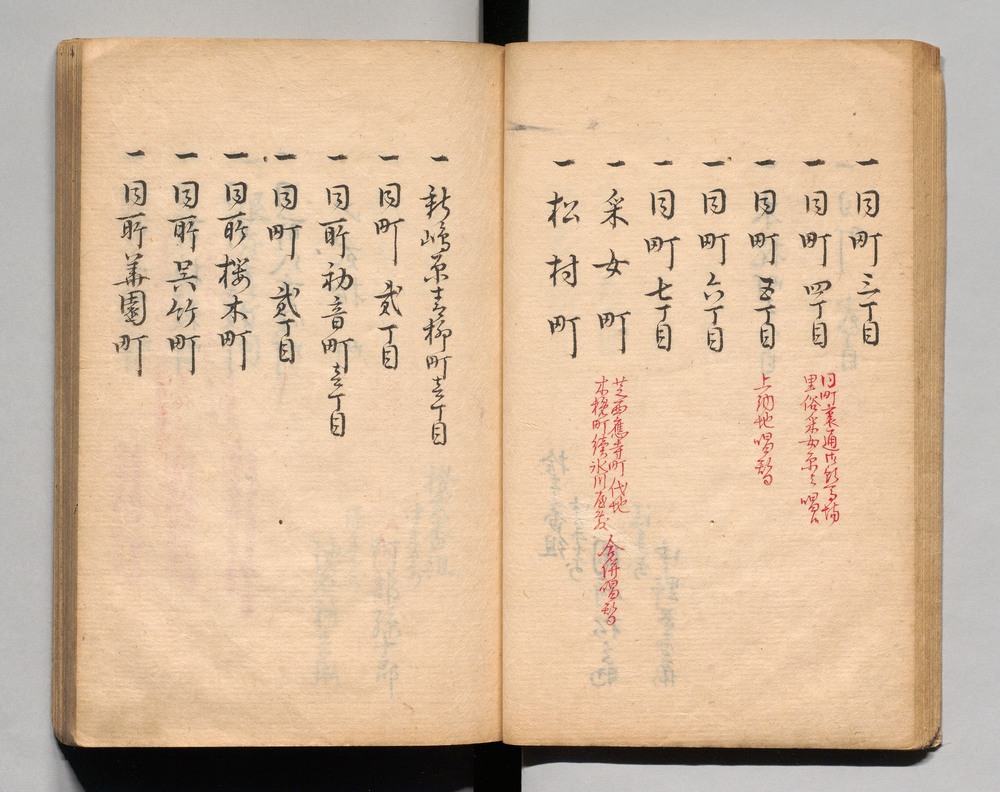 一 同町三丁目
一 同町四丁目
同町裏通
里俗采女原と唱
一 同町五丁目
上納地唱替
一 同町六丁目
一 同町七丁目
一 采女町
芝西應寺町代地
木挽町續氷川屋敷 合併唱替
一 松村町
一 新嶋原青柳町壱丁目
一 同町 貳丁目
一 同所初音町壱丁目
一 同町 貳丁目
一 同所桜木町
一 同所呉竹町
一 同所華園町